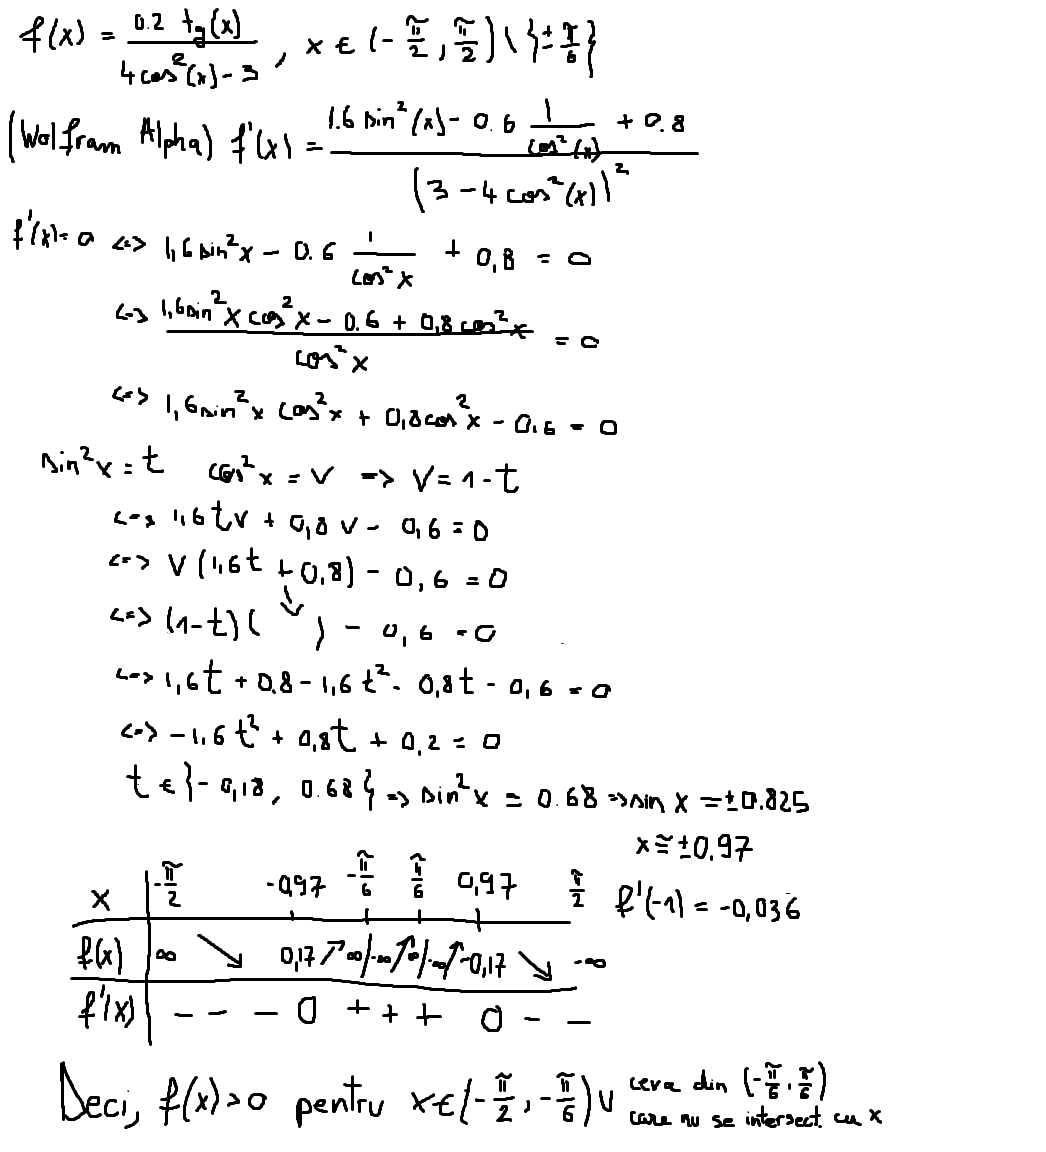 f(x) = 0.2 tg(x) / 4cos²(x)-3 , x ∈ (-π/2, π/2) \ {±π/6}
(Wolfram Alpha) f'(x) = 1.6 sin²(x) - 0.6 1/cos²(x) + 0.8 / (3 - 4 cos²(x))²
f'(x)=0 <=> 1,6 sin²x - 0.6 1/cos²x + 0,8 = 0
<=> 1,6sin²x cos²x - 0.6 + 0,8 cos²x / cos²x = 0
<=> 1,6sin²x cos²x + 0,8cos²x - 0,6 = 0
sin²x = t cos²x = v => v = 1-t
<=> 1,6tv + 0,8v - 0,6 = 0
<=> v(1,6t + 0,8) - 0,6 = 0
<=> (1-t)( ↓ ) - 0,6 = 0
<=> 1,6t + 0.8 - 1,6t² - 0,8t - 0,6 = 0
<=> -1.6t² + 0,8t + 0,2 = 0
t ∈ {-0,18, 0.68} => sin²x = 0.68 => sin x = ±0.825
x ≅ ±0,97
x -π/2 -0,97 -π/6 π/6 0,97 π/2 f'(-1) = -0,036
f(x) ∞ ↘ 0,17 ↗ ∞/-∞ ↗ ∞/-∞ ↗ -0,17 ↘ -∞
f'(x) - - - 0 + + + 0 - -
Deci, f(x)>0 pentru x∈(-π/2, -π/6) ∪ ceva din (-π/6, π/6)
care nu se intersect. cu x